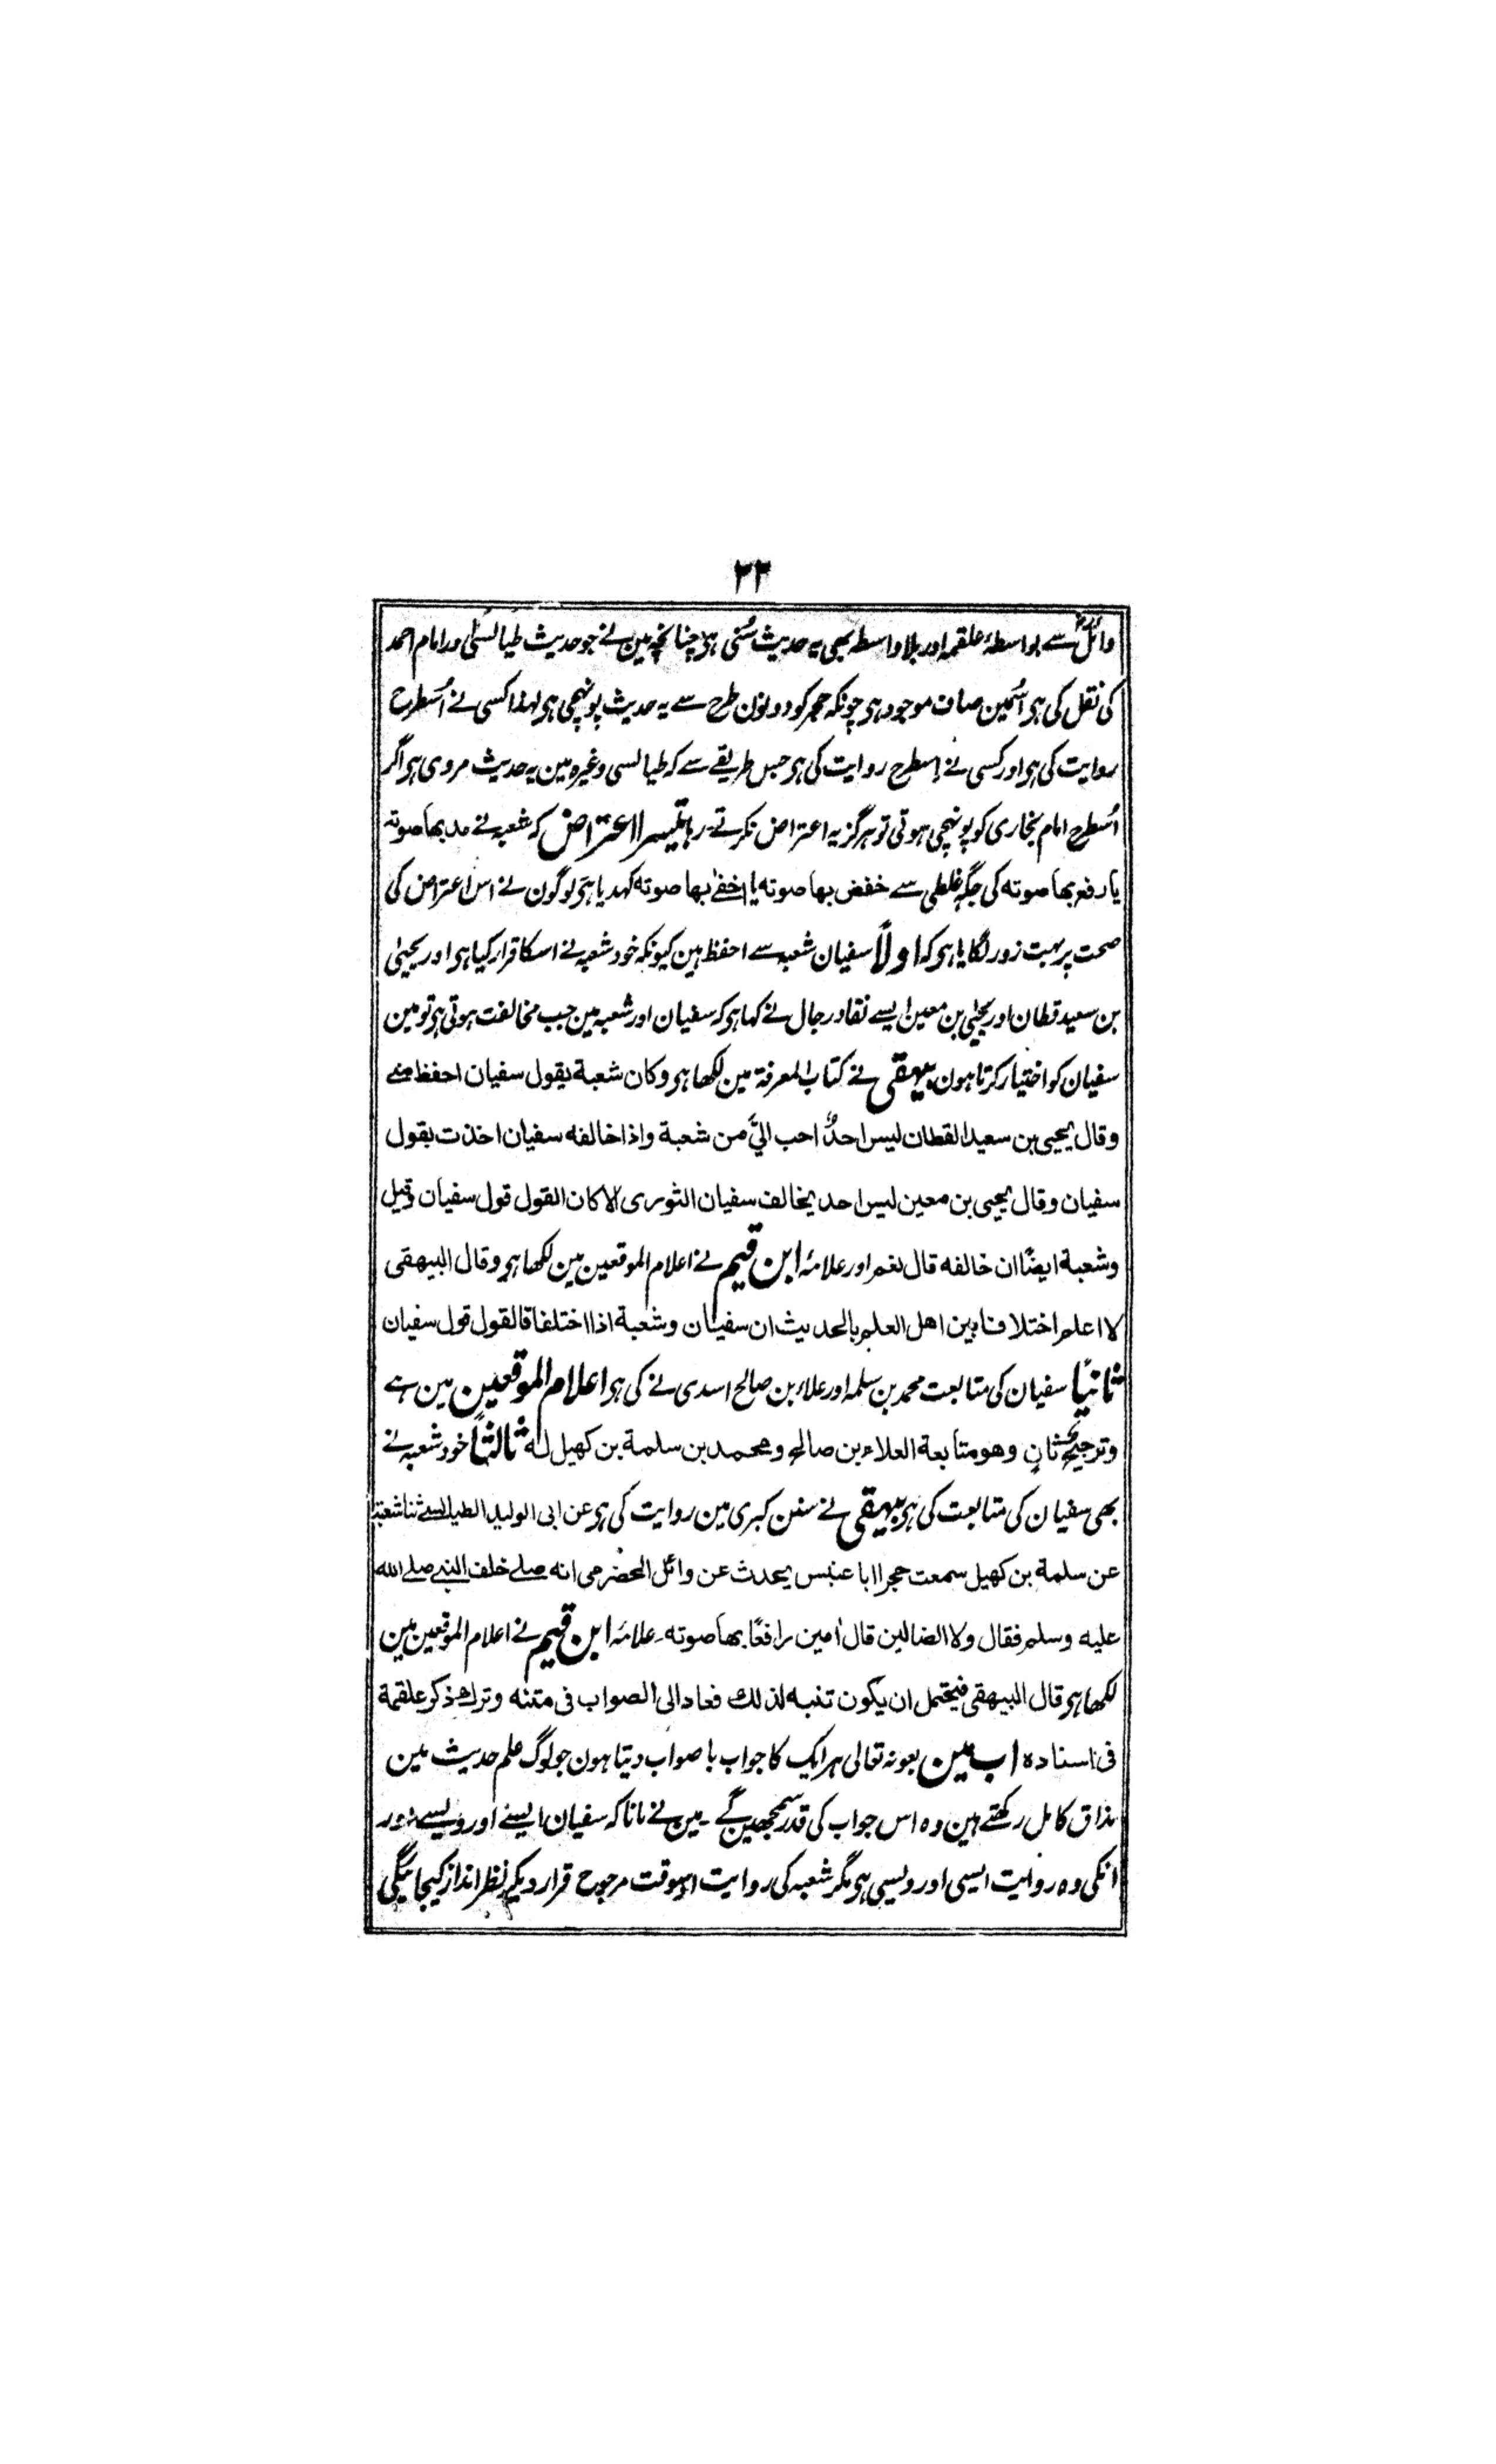 ٢٣
وائلؓ سے بواسطۂ علقمہ اور بلا واسطہ بھی یہ حدیث سُنی ہی چنانچہ مین نے جو حدیث طیالسی اور امام احمد
کی نقل کی ہی اسُمین صاف موجود ہی چونکہ حجر کو دونون طرح سے یہ حدیث پونہچی ہی لہذا کسی نے اُسطرح
روایت کی ہی اور کسی نے اِسطرح روایت کی ہی جس طریقے سے کہ طیالسی وغیرہ مین یہ حدیث مروی ہی اگر
اُسطرح امام بخاری کو پونہچی ہوتی تو ہرگز یہ اعتراض نکرتے۔ رہا تیسرا اعتراض کہ شعبہ نے مد بھا صوتہ
یا رفع بھا صوتہ کی جگہ غلطی سے خفض بھا صوتہ یا اخفےٰ بھا صوتہ کہدیا ہی لوگون نے اس اعتراض کی
صحت پر بہت زور لگایا ہی کہ اولًا سفیان شعبہ سے احفظ ہین کیونکہ خود شعبہ نے اسکا قرار کیا ہی اور یحییٰ
بن سعید قطان اور یحییٰ بن معین ایسے نقاد رجال نے کہا ہی کہ سفیان اور شعبہ مین جب مخالفت ہوتی ہی تو مین
سفیان کو اختیار کرتا ہون بیہقی نے کتاب المعرفۃ مین لکھا ہی وکان شعبة يقول سفيان احفظ منے
وقال يحيى بن سعيد القطان ليس احدٌ احب اليَّ من شعبة واذا خالفه سفيان اخذت بقول
سفيان وقال يحيى بن معين ليس احد يخالف سفيان الثورى الا كان القول قول سفيان وقيل
وشعبة ايضًا ان خالفه قال نعم اور علامۂ ابن قیم نے اعلام الموقعین مین لکھا ہی وقال البيهقى
لا اعلم اختلافا بين اهل العلم بالحديث ان سفيان وشعبة اذا اختلفا فالقول قول سفيان
ثانیًا سفیان کی متابعت محمد بن سلمہ اور علاء بن صالح اسدی نے کی ہی اعلام الموقعین مین ہے
وترجيح ثانٍ وهو متابعة العلاء بن صالح ومحمد بن سلمة بن كهيل له ثالثًا خود شعبہ نے
بھی سفیان کی متابعت کی ہی بیہقی نے سنن کبری مین روایت کی ہی عن ابى الوليد الطيالسے ثنا شعبة
عن سلمة بن كهيل سمعت حجرا ابا عنبس يحدث عن وائل الحضرمى انه صلے خلف النبے صلے الله
عليه وسلم فقال ولا الضالين قال اٰمين رافعًا بها صوته۔ علامۂ ابن قیم نے اعلام الموقعین مین
لکھا ہی قال البيهقى فيحتمل ان يكون تنبه لذلك فعاد الى الصواب فى متنه وترك ذكر علقمة
فى اسناده اب مین بعونہ تعالی ہر ایک کا جواب با صواب دیتا ہون جو لوگ علم حدیث مین
مذاق کامل رکھتے ہین وہ اس جواب کی قدر سمجھین گے۔ مین نے مانا کہ سفیان ایسے اور ویسے اور
انکی وہ روایت ایسی اور ویسی ہی مگر شعبہ کی روایت اسوقت مرجوح قرار دیکر نظر انداز کیجائیگی